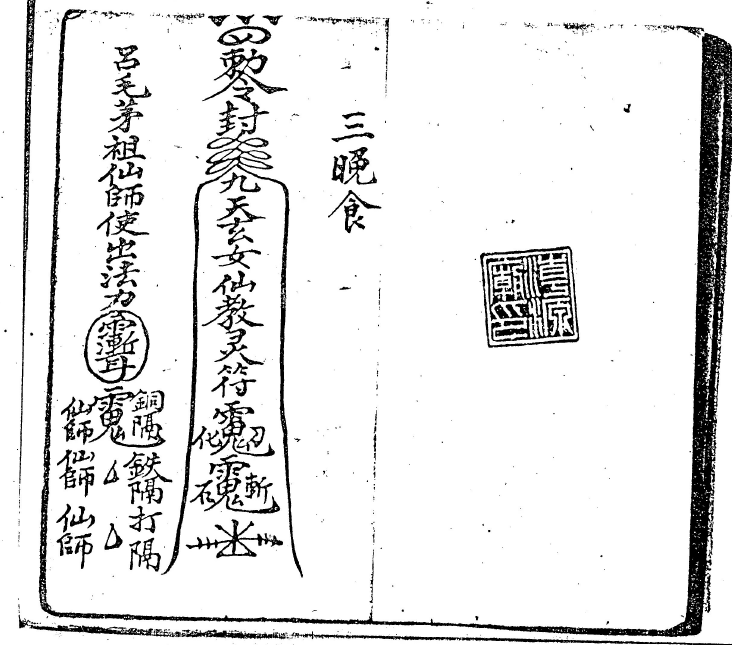 三晚食
勅令封九天玄女仙教灵符
化
石斬
呂毛茅祖仙師使出法力
銅隔 鉄隔 打隔
仙師 仙師 仙師